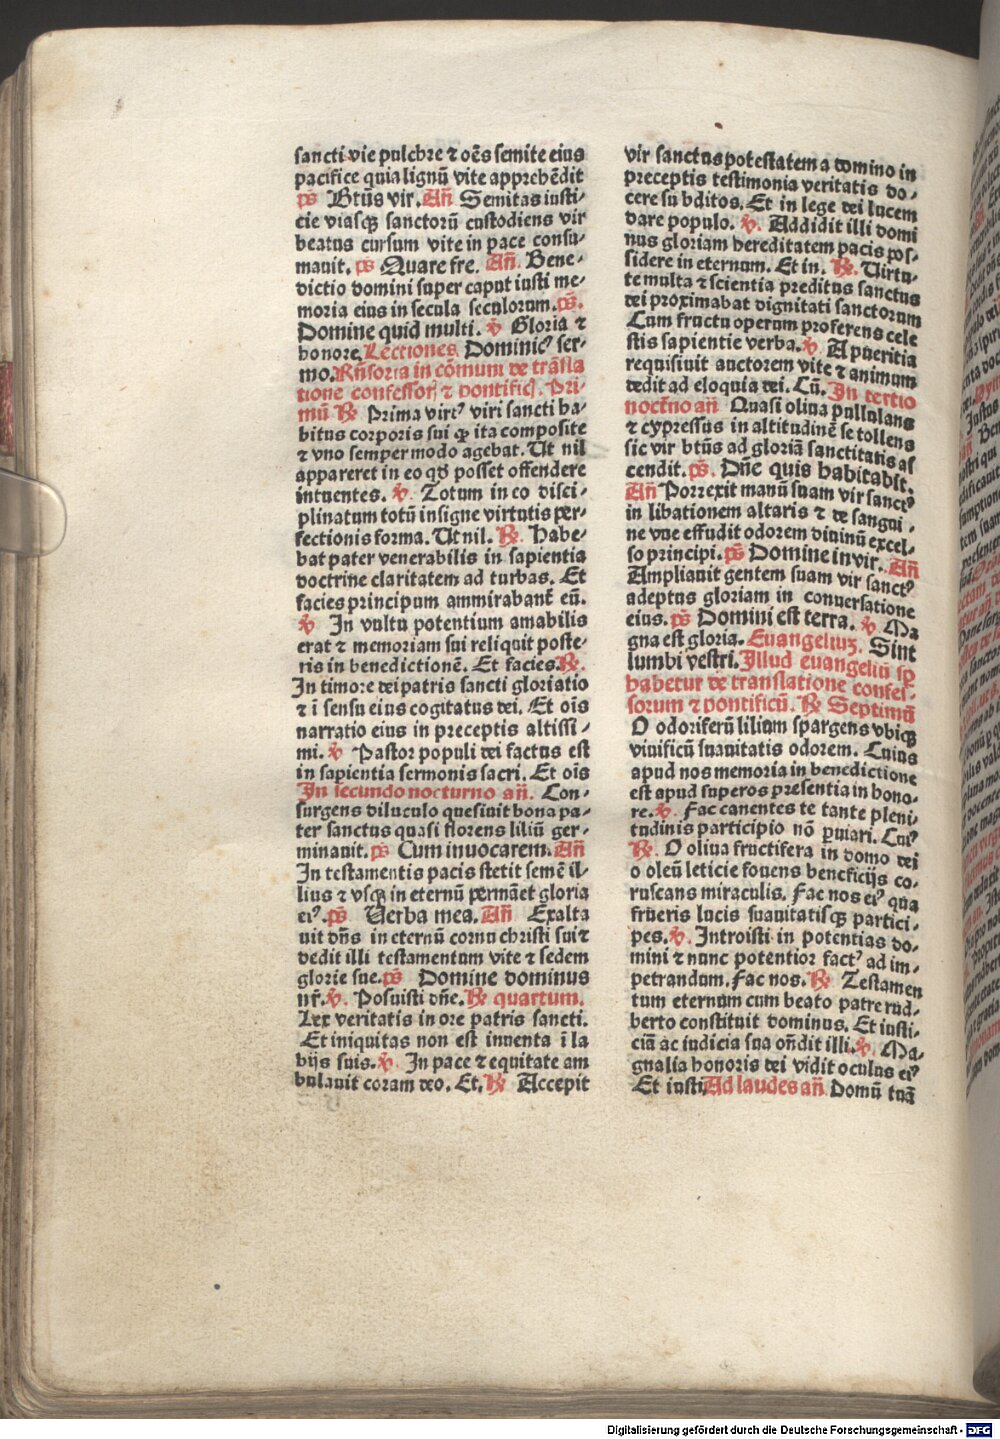 sancti vie pulchre ⁊ oēs semite eius
pacifice quia lignū vite apprehēdit
p̄s Btūs vir. Añ Semitas iusti-
cie viasqꝫ sanctorū custodiens vir
beatus cursum vite in pace consu-
mauit. p̄s Quare fre. Añ. Bene-
dictio domini super caput iusti me-
moria eius in secula seculorum. p̄s.
Domine quid multi. ℣ Gloria ⁊
honore. Lectiones Dominicꝰ ser-
mo. Rñsoria in cōmuni de trāsla
tione confessorꝝ ⁊ pontificꝫ. Pri-
mū ℟ Prima virtꝰ viri sancti ha-
bitus corporis sui ꝙ ita composite
⁊ vno semper modo agebat. Ut nil
appareret in eo qḋ posset offendere
intuentes. ℣. Totum in eo disci-
plinatum totū insigne virtutis per-
fectionis forma. Ut nil. ℟. Habe-
bat pater venerabilis in sapientia
doctrine claritatem ad turbas. Et
facies principum ammirabant̄ eū.
℣ In vultu potentium amabilis
erat ⁊ memoriam sui reliquit poste-
ris in benedictionē. Et facies. ℟.
In timore dei patris sancti gloriatio
⁊ ī sensu eius cogitatus dei. Et oīs
narratio eius in preceptis altissi-
mi. ℣ Pastor populi dei factus est
in sapientia sermonis sacri. Et oīs
In secundo nocturno añ. Con-
surgens diluculo quesiuit bona pa-
ter sanctus quasi florens liliū ger-
minauit. p̄s Cum inuocarem. Añ
In testamentis pacis stetit semē il-
lius ⁊ vsqꝫ in eternū permāet gloria
eiꝰ. p̄s Verba mea. Añ Exalta
uit dn̄s in eternū cornu christi sui ⁊
dedit illi testamentum vite ⁊ sedem
glorie sue. p̄s Domine dominus
nr̄. ℣. Posuisti dn̄e. ℟ quartum.
Lex veritatis in ore patris sancti.
Et iniquitas non est inuenta ī la
bijs suis. ℣ In pace ⁊ equitate am
bulauit coram deo. Et. ℟ Accepit
vir sanctus potestatem a domino in
preceptis testimonia veritatis do-
cere subditos. Et in lege dei lucem
dare populo. ℣. Addidit illi domi
nus gloriam hereditatem pacis pos-
sidere in eternum. Et in. ℟. Virtu-
te multa ⁊ scientia preditus sanctus
dei proximabat dignitati sanctorum
Cum fructu operum proferens cele
stis sapientie verba. ℣ A pueritia
requisiuit auctorem vite ⁊ animum
dedit ad eloquia dei. Cū. In tertio
noct̄no añ Quasi oliua pullulans
⁊ cypressus in altitudinē se tollens
sic vir btūs ad gloriā sanctitatis as
cendit. p̄s. Dn̄e quis habitabit.
Añ Porrexit manū suam vir sanctꝰ
in libationem altaris ⁊ de sangui-
ne vue effudit odorem diuinū excel-
so principi. p̄s Domine in vir. Añ
Ampliauit gentem suam vir sanctꝰ
adeptus gloriam in conuersatione
eius. p̄s Domini est terra. ℣ Ma
gna est gloria. Euangeliuꝫ. Sint
lumbi vestri. Illud euangeliū sꝑ
habetur de translatione confes-
sorum ⁊ pontificū. ℟ Septimū
O odoriferū lilium spargens vbiqꝫ
viuificū suauitatis odorem. Cuius
apud nos memoria in benedictione
est apud superos presentia in hono-
re. ℣. Fac canentes te tante pleni-
tudinis participio nō priuari. Cuiꝰ
℟. O oliua fructifera in domo dei
o oleū leticie fouens beneficijs co-
ruscans miraculis. Fac nos eiꝰ qua
frueris lucis suauitatisqꝫ partici-
pes. ℣. Introisti in potentias do-
mini ⁊ nunc potentior factꝰ ad im-
petrandum. Fac nos. ℟ Testamen
tum eternum cum beato patre rud-
berto constituit dominus. Et iusti-
ciā ac iudicia sua ōndit illi. ℣. Ma-
gnalia honoris dei vidit oculus eiꝰ
Et iusti. Ad laudes añ. Domū tuā
Digitalisierung gefördert durch die Deutsche Forschungsgemeinschaft - DFG